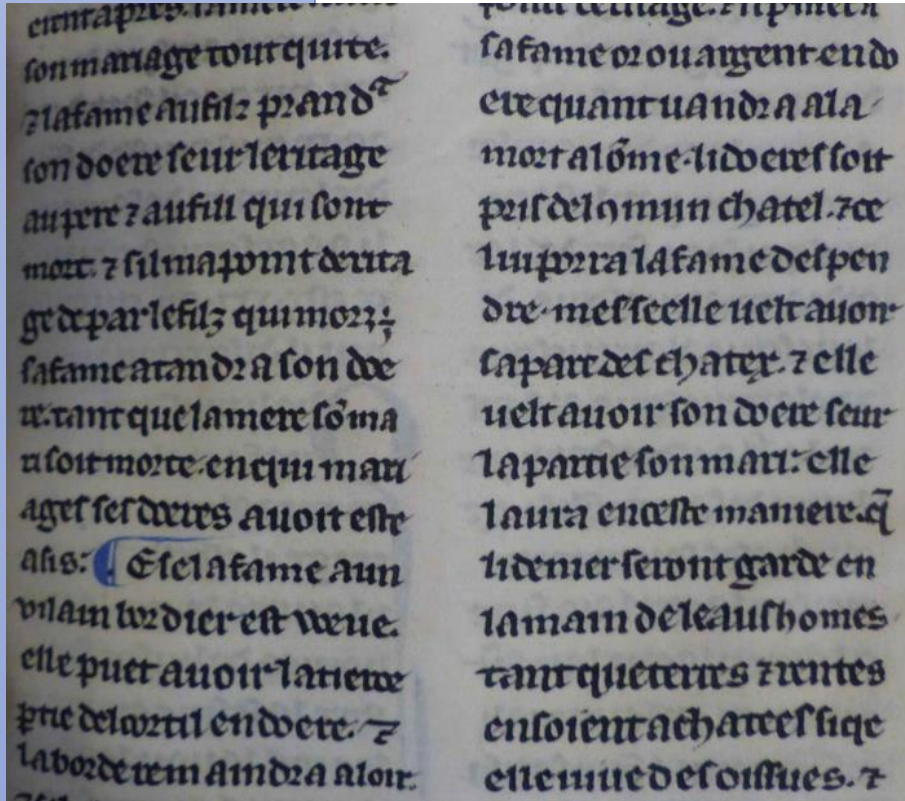 son mariage tout quite.
⁊ la fame au filz prandra
son doere seur leritage
au pere ⁊ au fill qui sont
mort. ⁊ sil ni a point derita
ge de par le filz qui morz ÷
sa fame atandra son doe
re. tant que la mere sō ma
ri soit morte. en qui mari
ages ses doeres auoit este
asis: E se la fame a un
vilain bordier est veue.
elle puet auoir la tierce
ptie del cortil en doere. ⁊
la borde remaindra a loir.
sa fame or ou argent en do
ere quant uandra a la
mort a lōme. li doeres soit
pris del ꝯmun chatel. ⁊ ce
li uporra la fame despen
dre. mes se elle uelt auoir
sa part des chatex. ⁊ elle
uelt auoir son doere seur
la partie son mari: elle
laura en ceste maniere. q̄
li denier seront garde en
la main de leaus homes
tant que terres ⁊ rentes
en soient achatees si qe
elle uiue des oissues. ⁊